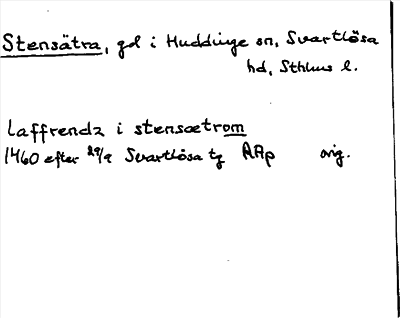 Stensätra, gd i Huddinge sn, Svartlösa
hd, Sthlms l.
laffrendz i stensætrom
1460 efter 29/9 Svartlösa tg RAp orig.